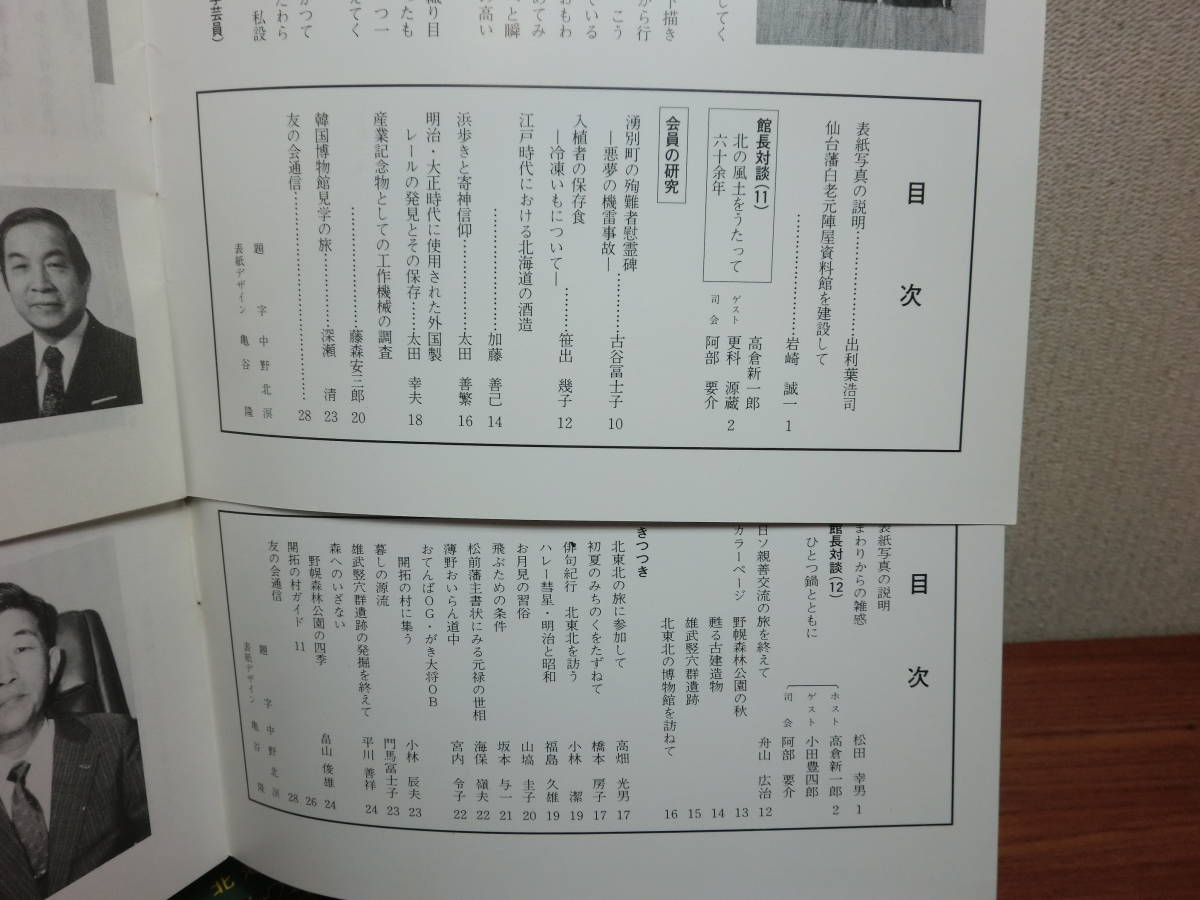 してく
下描き
から行
こう
ている
おもわ
めてみ
と瞬
の高い
織り目
たも
つ一
えてく
かつて
たわら
私設
学芸員)
目 次
表紙写真の説明…………………出利葉浩司
仙台藩白老元陣屋資料館を建設して
…………………岩崎 誠一 1
館長対談(11)
北の風土をうたって
六十余年
高倉新一郎
ゲスト 更科 源蔵 2
司会 阿部 要介
会員の研究
湧別町の殉難者慰霊碑
―悪夢の機雷事故―…………古谷冨士子 10
入植者の保存食
―冷凍いもについて―………笹出 幾子 12
江戸時代における北海道の酒造
…………………加藤 善己 14
浜歩きと寄神信仰……………太田 善繁 16
明治・大正時代に使用された外国製
レールの発見とその保存……太田 幸夫 18
産業記念物としての工作機械の調査
…………………藤森安三郎 20
韓国博物館見学の旅…………深瀬 清 23
友の会通信…………………28
題字 中野北溟
表紙デザイン 亀谷 隆
目 次
表紙写真の説明
まわりからの雑感 松田 幸男 1
館長対談(12)
ひとつ鍋とともに
ホスト 高倉新一郎 2
ゲスト 小田豊四郎
司会 阿部 要介
日ソ親善交流の旅を終えて 舟山 広治 12
カラーページ 野幌森林公園の秋 13
甦る古建造物 14
雄武竪穴群遺跡 15
北東北の博物館を訪ねて 16
きつつき
北東北の旅に参加して 高畑 光男 17
初夏のみちのくをたずねて 橋本 房子 17
俳句紀行 北東北を訪う 小林 潔 19
ハレー彗星・明治と昭和 福島 久雄 19
お月見の習俗 山塙 圭子 20
飛ぶための条件 坂本 与一 21
松前藩主書状にみる元禄の世相 海保 嶺夫 22
薄野おいらん道中 宮内 令子 22
おてんばOG・がき大将OB
開拓の村に集う 小林 辰夫 23
暮しの源流 門馬冨士子 23
雄武竪穴群遺跡の発掘を終えて 平川 善祥 24
森へのいざない
野幌森林公園の四季 畠山 俊雄 24
26
開拓の村ガイド 11
28
友の会通信
題字 中野北溟
表紙デザイン 亀谷 隆
北